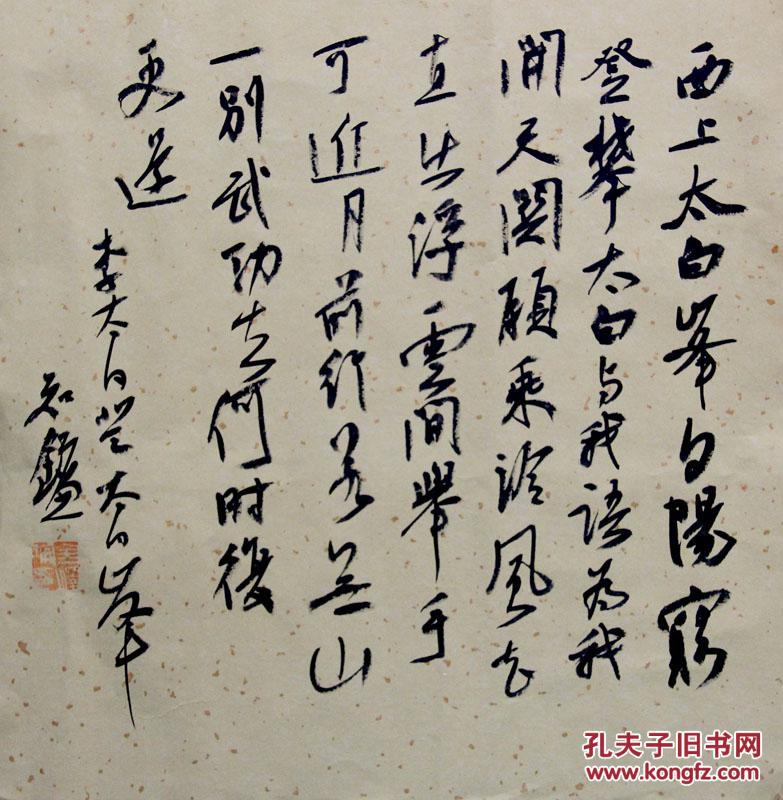 西上太白峯夕陽窮
登攀太白与我語为我
開天関願乘泠風去
直出浮雲間舉手
可近月前行若无山
一別武功去何时復
更还
李太白登太白峯
知鐮
孔夫子旧书网
www.kongfz.com